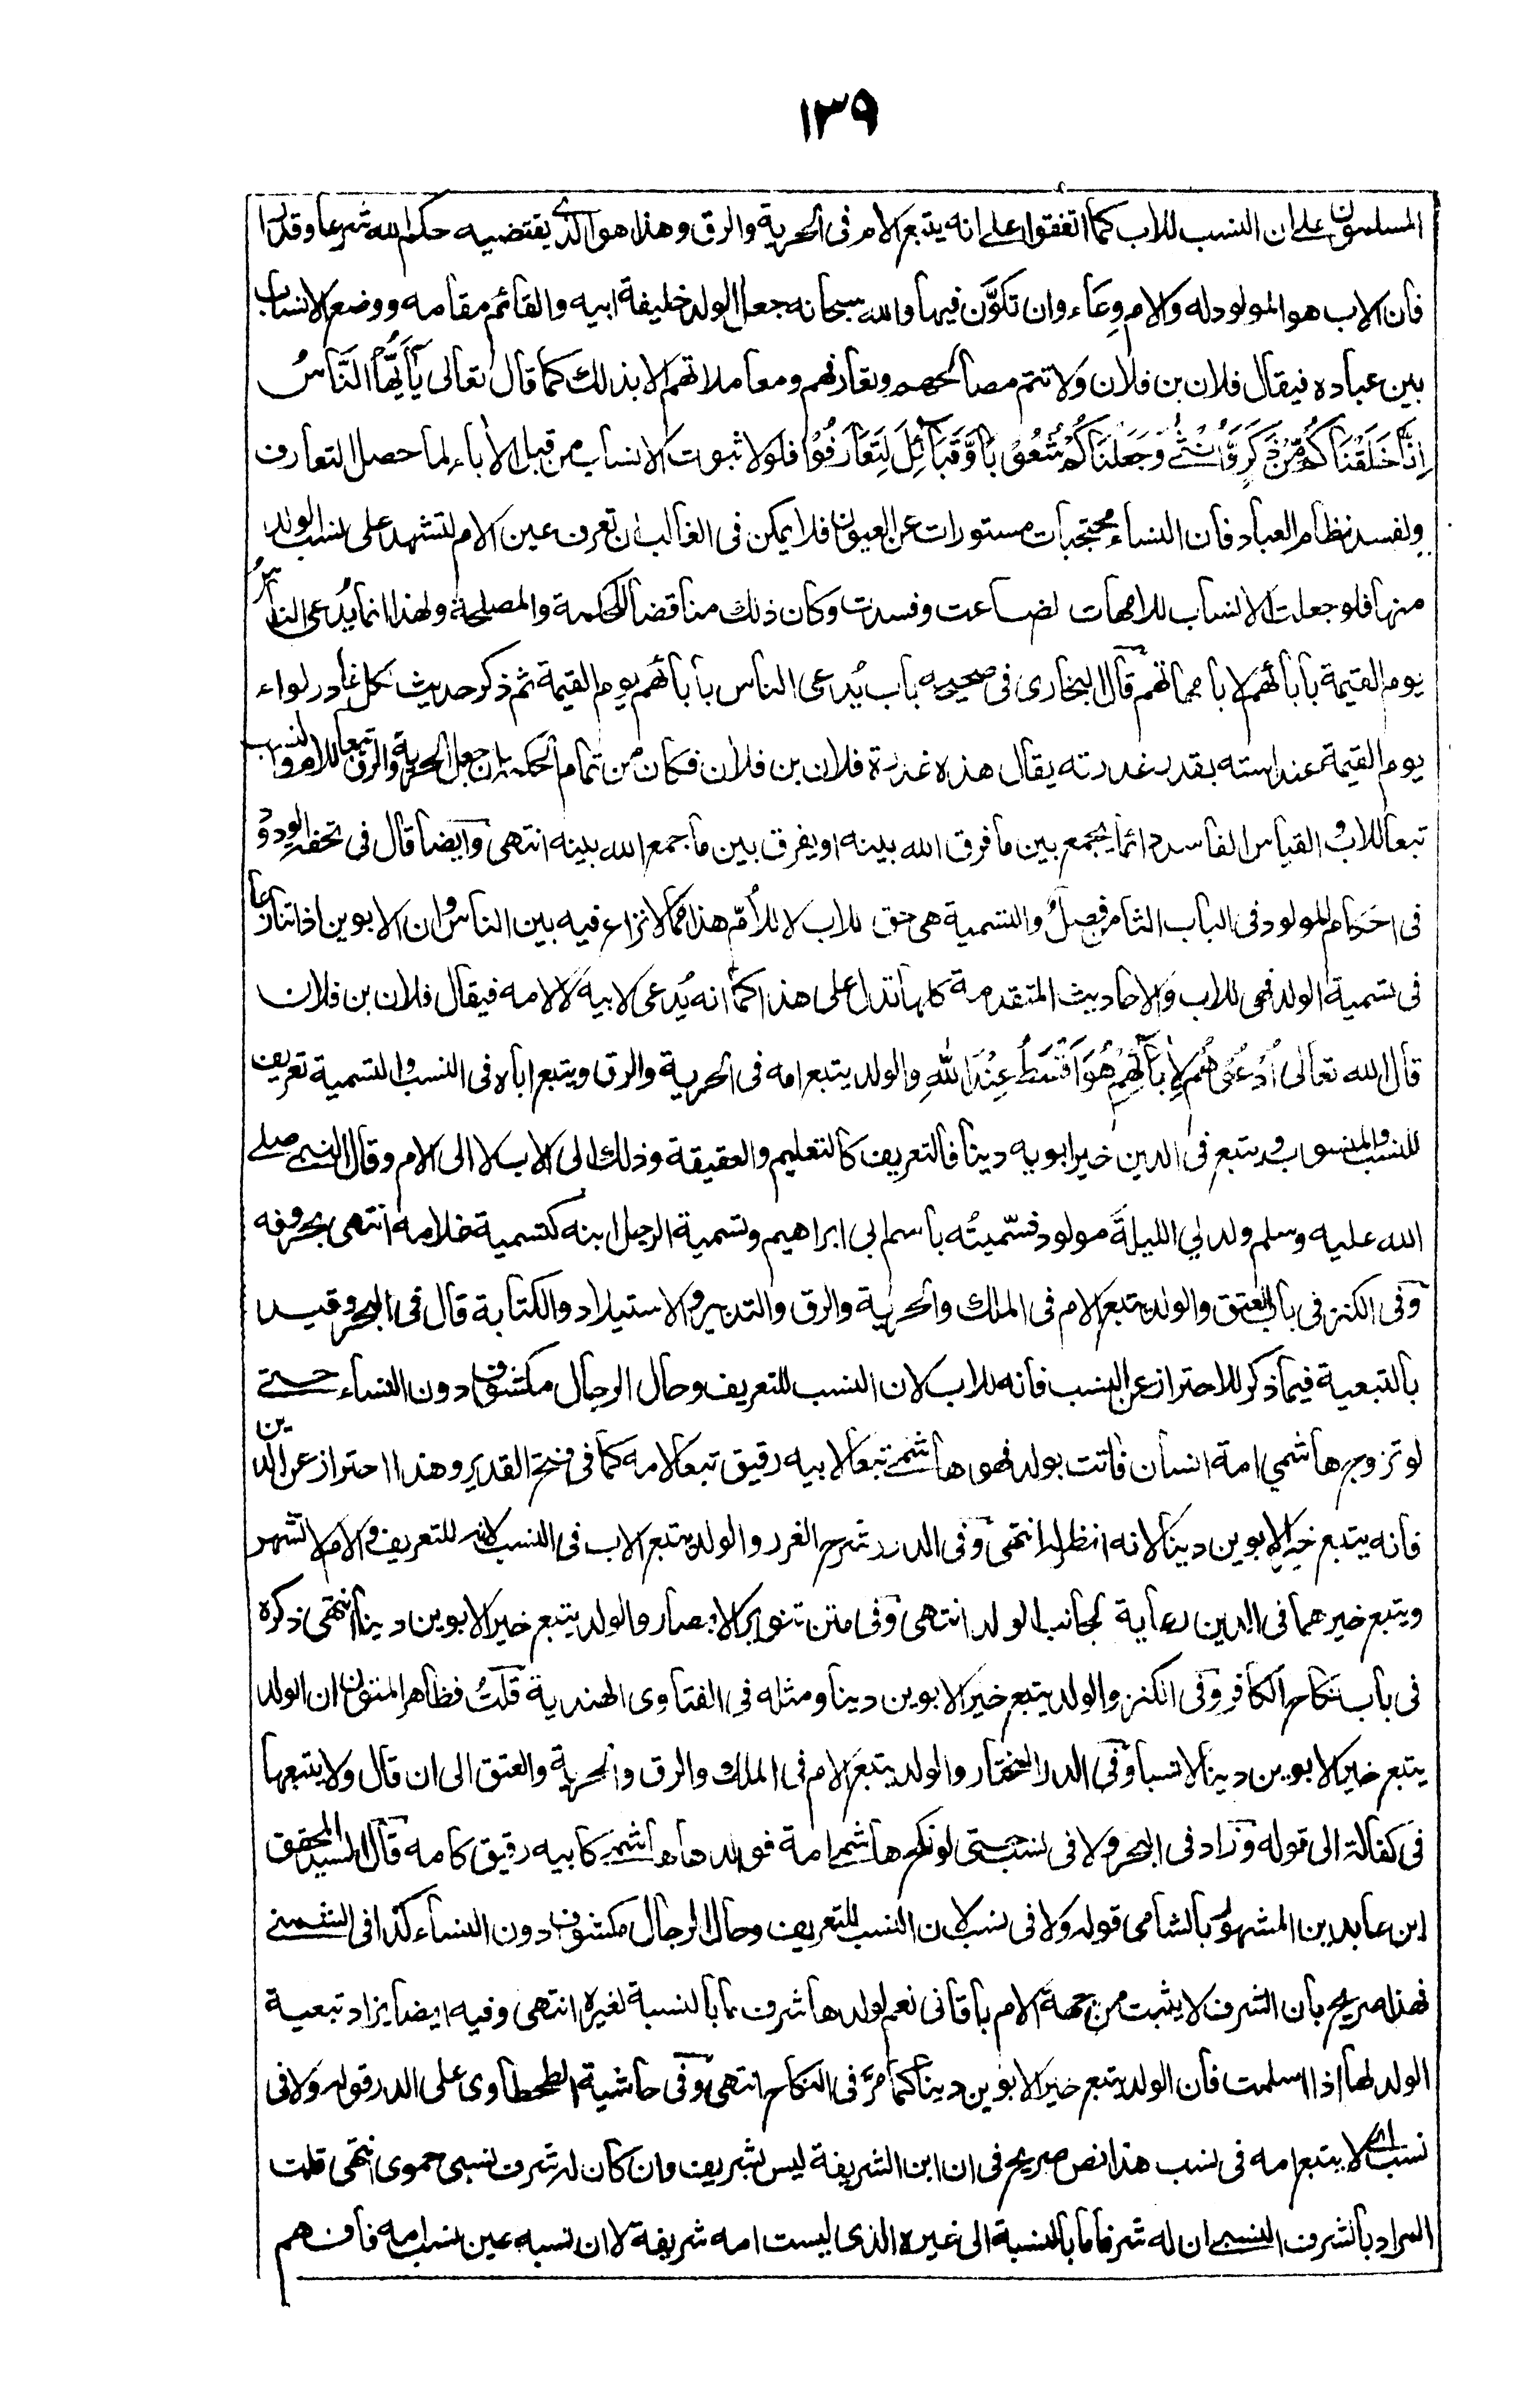 ١٣٩
المسلمون على ان النسب للاب كما اتفقوا على انه يتبع الام فى الحرية والرق وهذا هو الذى يقتضيه حكم الله شرعا وقدرا
فان الاب هو المولود له والام وِعَاء وان تكوَّن فيها والله سبحانه جعل الولد خليفة ابيه والقائم مقامه ووضع الانساب
بين عباده فيقال فلان بن فلان ولا تتم مصالحهم وتعارفهم ومعاملاتهم الا بذلك كما قال تعالى يٰٓاَيُّهَا النَّاسُ
اِنَّا خَلَقْنَاكُمْ مِّنْ ذَكَرٍ وَّاُنْثٰى وَجَعَلْنَاكُمْ شُعُوْبًا وَّقَبَآئِلَ لِتَعَارَفُوْا فلولا ثبوت الانساب من قبل الأباء لما حصل التعارف
ولفسد نظام العباد فان النساء محتجبات مستورات عن العيون فلا يمكن فى الغالب ان تعرف عين الام لتشهد على نسب الولد
منها فلو جعلت الانساب للامهات لضاعت وفسدت وكان ذلك مناقضا للحكمة والمصلحة ولهذا انما يُدعى الناسُ
يوم القيمة بأبائهم لا بامهاتهم قال البخارى فى صحيحه باب يُدعى الناس بأبائهم يوم القيمة ثم ذكر حديث لكل غادر لواء
يوم القيمة عند استه بقدر غدرته يقال هذه غدرة فلان بن فلان فكان من تمام الحكمة ان جعل الحرية والرق تبعا للام والنسب
تبعا للاب والقياس الفاسد انما يجمع بين ما فرق الله بينه او يفرق بين ما جمع الله بينه انتهى وايضا قال فى تحفة الودود
فى احكام المولود فى الباب الثامن فصلٌ والتسمية هى حق للاب لا للاُمّ هذا مما لا نزاع فيه بين الناس وان الابوين اذا تنازعا
فى تسمية الولد فهى للاب والاحاديث المتقدمة كلها تدل على هذا كما انه يُدعى لابيه لا لامه فيقال فلان بن فلان
قال الله تعالى اُدْعُوْهُمْ لِاٰبَآئِهِمْ هُوَ اَقْسَطُ عِنْدَ اللهِ والولد يتبع امه فى الحرية والرق ويتبع اباه فى النسب والتسمية تعريف
للنسب والمنسوب ويتبع فى الدين خير ابويه دينا فالتعريف كالتعليم والعقيقة وذلك الى الاب لا الى الام وقال النبى صلى
الله عليه وسلم ولد لي الليلةَ مولود فسمّيتُه باسم ابى ابراهيم وتسمية الرجل ابنه كتسمية غلامه انتهى بحروفه
وفى الكنز فى باب العتق والولد يتبع الام فى الملك والحرية والرق والتدبير والاستيلاد والكتابة قال فى البحر وقيد
بالتبعية فيما ذكر للاحتراز عن النسب فانه للاب لان النسب للتعريف وحال الرجال مكشوف دون النساء حتى
لو تزوج هاشمي امة انسان فاتت بولد فهو هاشمى تبعا لابيه رقيق تبعا لامه كما فى فتح القدير وهذا احتراز عن الدين
فانه يتبع خير الابوين دينا لانه انظر له انتهى وفى الدرر شرح الغرر والولد يتبع الاب فى النسب لانه للتعريف والام لا تشهر
ويتبع خيرهما فى الدين رعاية لجانب الولد انتهى وفى متن تنوير الابصار والولد يتبع خير الابوين دينا انتهى ذكره
فى باب نكاح الكافر وفى الكنز والولد يتبع خير الابوين دينا ومثله فى الفتاوى الهندية قلتُ فظاهر المتون ان الولد
يتبع خير الابوين دينا لا نسبا وفى الدر المختار والولد يتبع الام فى الملك والرق والحرية والعتق الى ان قال ولا يتبعها
فى كفالة الى قوله وزاد فى البحر ولا فى نسب حتى لو نكح هاشمى امة فولدها هاشمى كابيه رقيق كامه قال السيد المحقق
ابن عابدين المشهور بالشامى قوله ولا فى نسب لان النسب للتعريف وحال الرجال مكشوف دون النساء كذا فى الشمنى
فهذا صريح بان الشرف لا يثبت من جهة الام باقانى نعم لولدها شرف ما بالنسبة لغيره انتهى وفيه ايضا يزاد تبعية
الولد لها اذا اسلمت فان الولد يتبع خير الابوين دينا كما مرّ فى النكاح انتهى وفى حاشية الطحطاوى على الدر قوله ولا فى
نسب اى لا يتبع امه فى نسب هذا نص صريح فى ان ابن الشريفة ليس بشريف وان كان له شرف نسبى حموى انتهى قلت
المراد بالشرف النسبى ان له شرفا ما بالنسبة الى غيره الذى ليست امه شريفة لا ان نسبه عين نسب امه فافهم